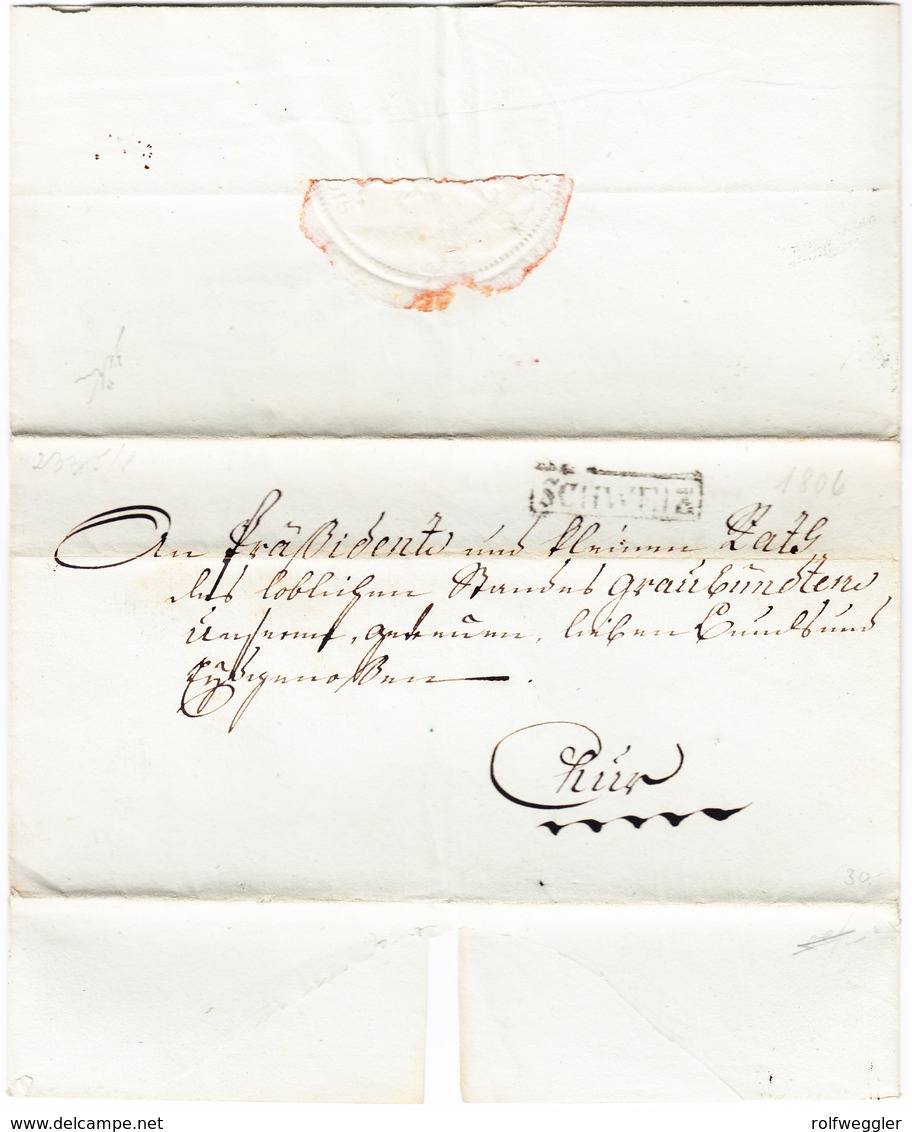 SCHWEIZ
1806
An Präßident und kleinen Rath
des loblichen Standes Graubündten
Unseren, getreuen, lieben Bunds und
Eydgenoßen.
Chur
30.
© www.delcampe.net
rolfweggler